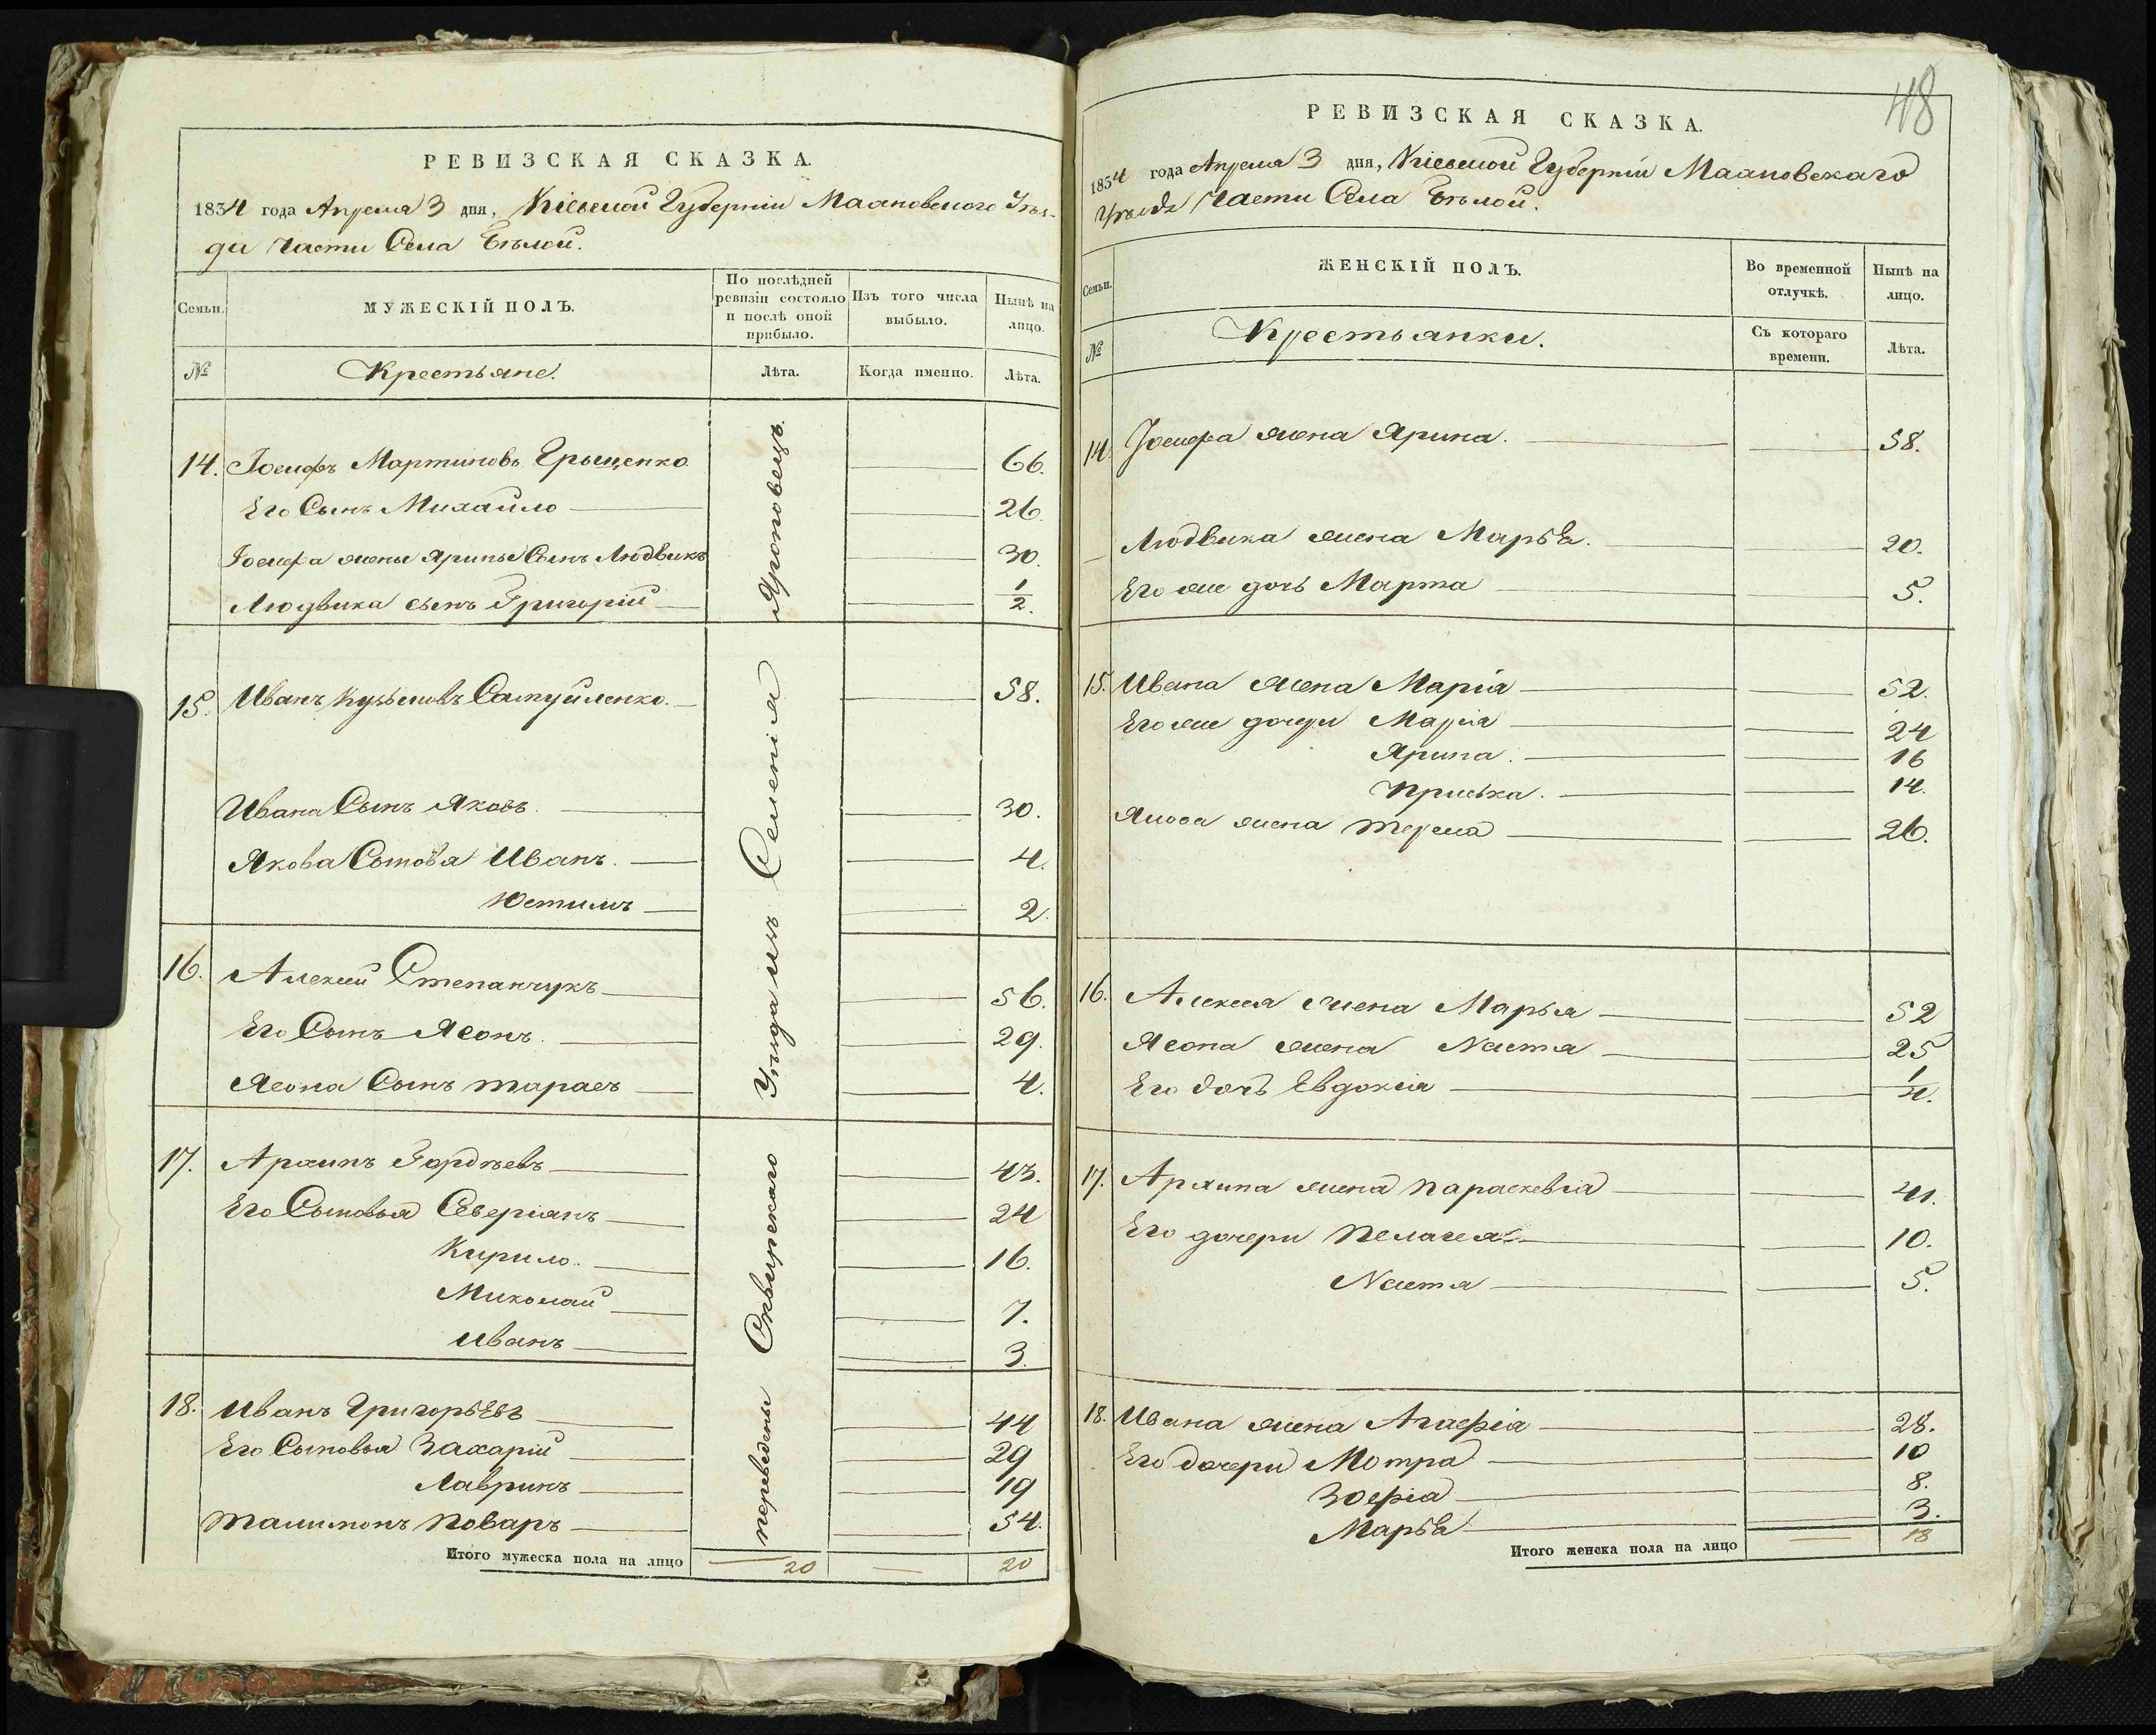 РЕВИЗСКАЯ СКАЗКА.
1834 года Апреля 3 дня, Кіевской Губерніи Махновского Уѣз-
да части Села Бѣлой.
Семьи.
МУЖЕСКІЙ ПОЛЪ.
По послѣдней ревизіи состояло и послѣ оной прибыло.
Изъ того числа выбыло.
Нынѣ на лицо.
№
Крестьяне.
Лѣта.
Когда именно.
Лѣта.
переведены Сквирскаго Уѣзда изъ Селенія
14. Іосифъ Мартиновъ Грыщенко 66.
Его Сынъ Михайло 26.
Іосифа жены Ярины Сынъ Людвикъ 30.
Людвика сынъ Григорій 1/2.
15. Иванъ Кузьмовъ Самуйленко. 58.
Ивана Сынъ Яковъ. 30.
Якова Сыновя Иванъ. 4.
Юстимъ 2.
16. Алексей Степанчукъ 56.
Его Сынъ Ясонъ. 29.
Ясона Сынъ Тарасъ 4.
17. Архипъ Гордѣевъ 43.
Его Сыновья Северіанъ 24
Кирило. 16.
Миколай 7.
Иванъ 3.
18. Иванъ Григорьевъ 44
Его Сыновья Захарій 29
Лавринъ 19
Талимонъ Поваръ 54.
Итого мужеска пола на лицо 20 20
48
РЕВИЗСКАЯ СКАЗКА.
1834 года Апреля 3 дня, Кіевской Губерніи Махновскаго
Уѣзда Части Села Бѣлой.
Семьи.
ЖЕНСКІЙ ПОЛЪ.
Во временной отлучкѣ.
Нынѣ на лицо.
№
Крестьянки.
Съ котораго времени.
Лѣта.
14. Іосифа жена Ярина. 58.
Людвика жена Марья. 20.
Его же дочь Марта 5.
15. Ивана жена Марія 52.
Его же дочери Марія 24
Ярина. 16
Приська. 14.
Якова жена Тереса 26.
16. Алексея жена Марья 52
Ясона жена Настя 25
Его дочь Евдокія 1/4.
17. Архипа жена Параскевія 41.
Его дочери Пелагея 10.
Настя 5.
18. Ивана жена Агафія 28.
Его дочери Мотра 10
Зофіа 8.
Марья 3.
Итого женска пола на лицо 18